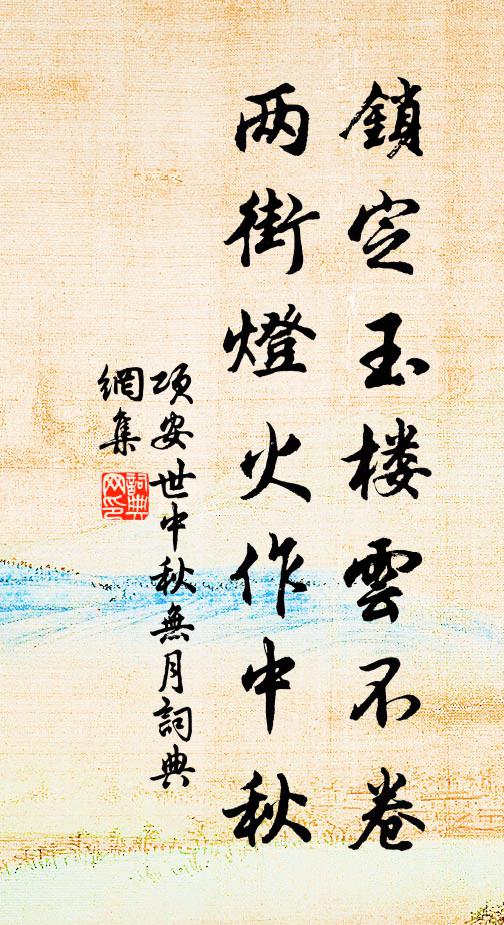 鎖定玉楼雲不卷
两街燈火作中秋
项安世中秋無月詞典
網集
詞典
网印